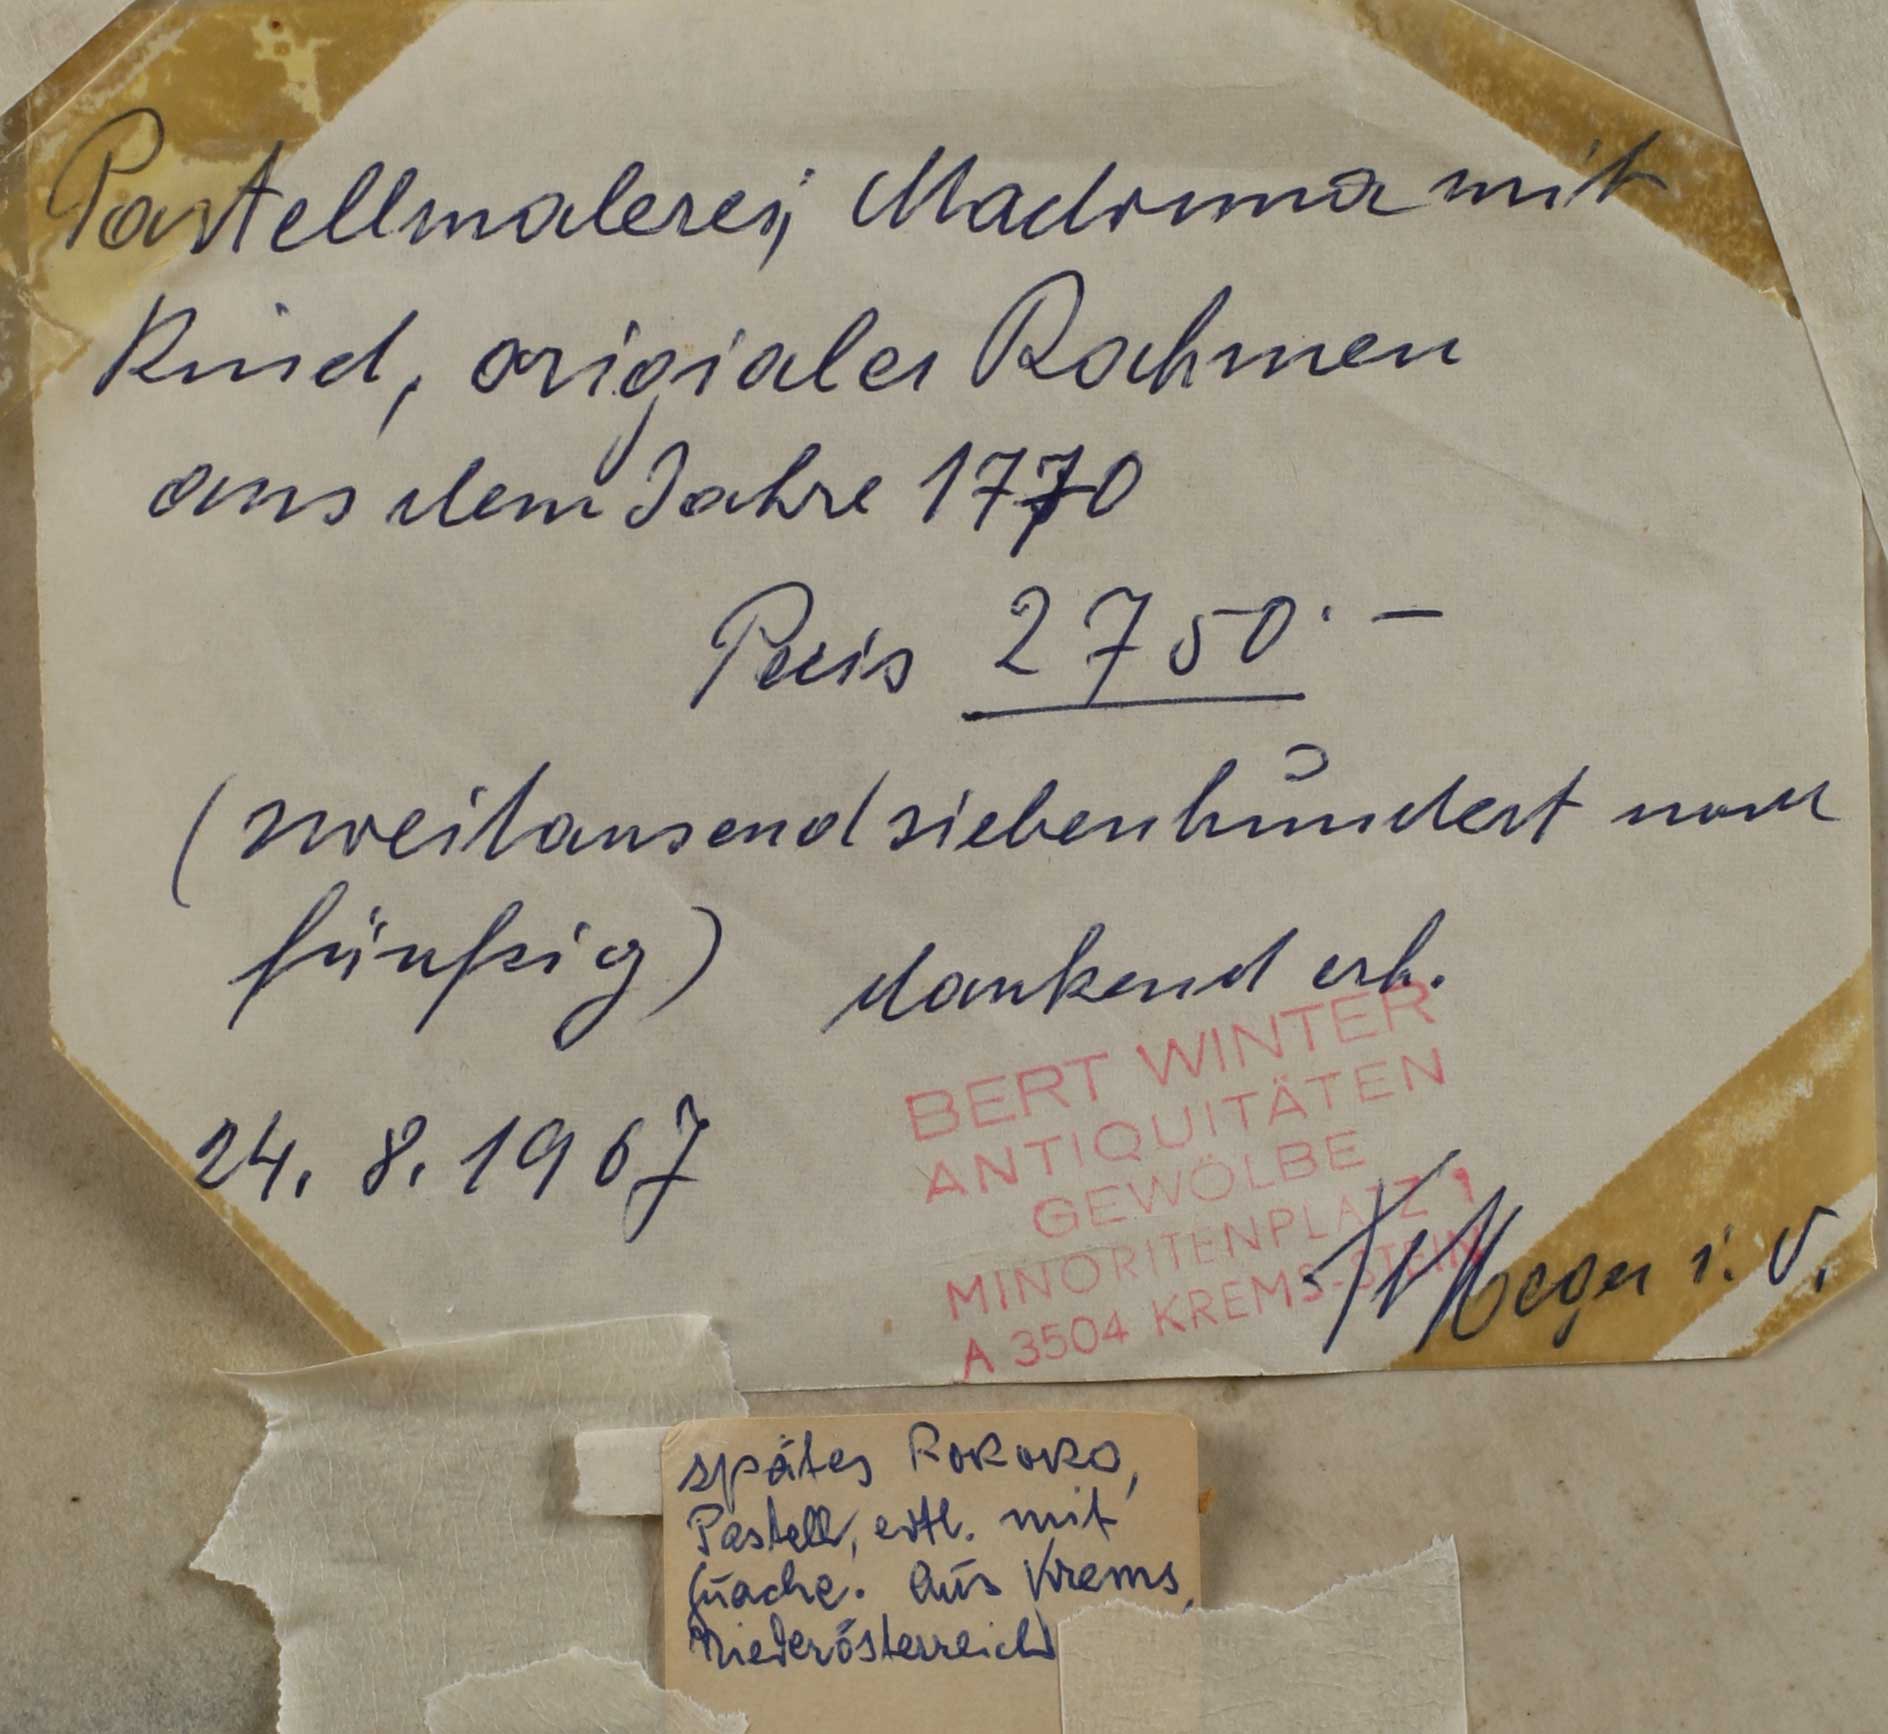 Pastellmalerei, Madonna mit
Kind, origialer Rahmen
aus dem Jahre 1770
Preis 2750.-
(zweitausendsiebenhundert und
fünfzig) dankend erh.
24. 8. 1967
BERT WINTER
ANTIQUITÄTEN
GEWÖLBE
MINORITENPLATZ 1
A 3504 KREMS-STEIN
i. V.
spätes Rokoko,
Pastell, evtl. mit
Guache. Aus Krems,
Niederösterreich